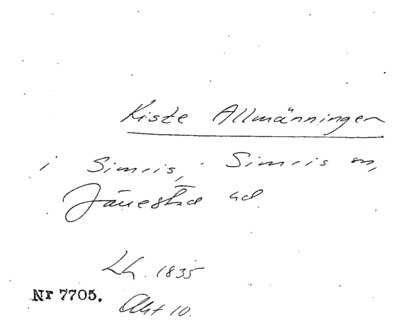 Kiste Allmänningen
i Simris, Simris sn,
Järrestad hd
Lh. 1835
Nr 7705.
Akt 10.